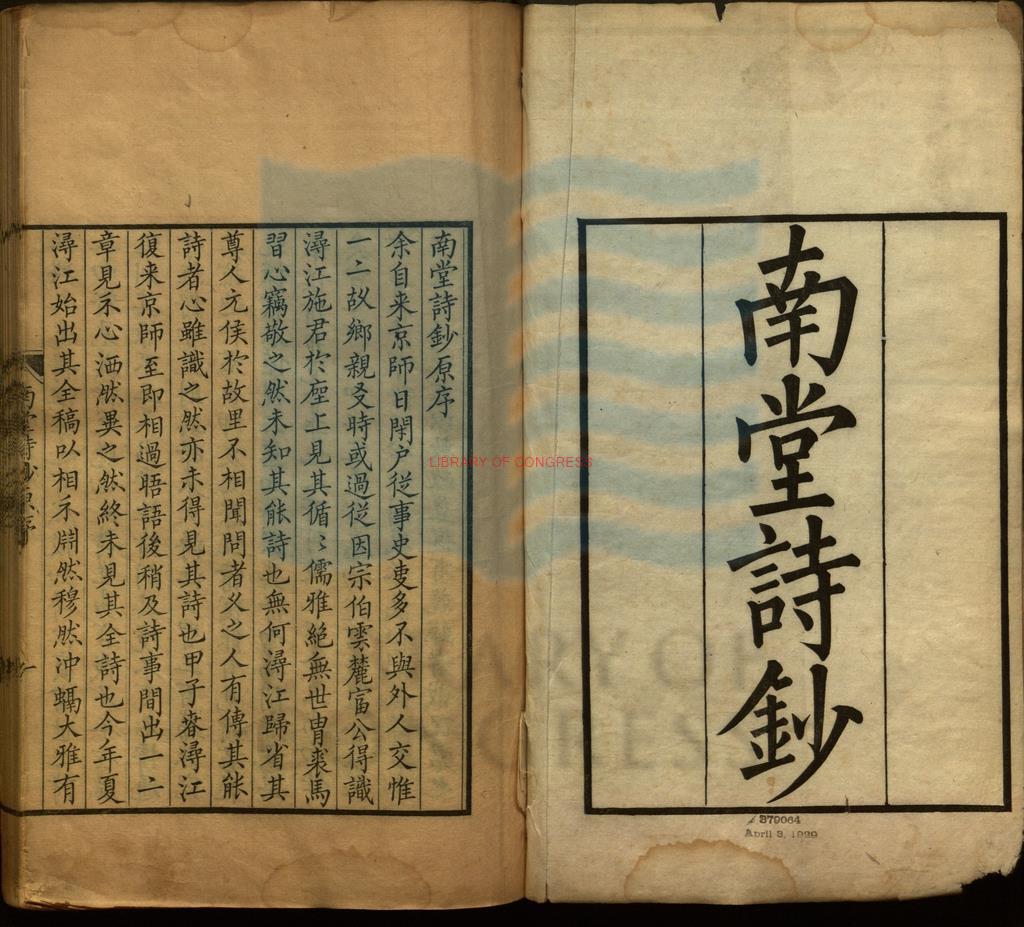 南堂詩鈔
379064
April 3, 1929
LIBRARY OF CONGRESS
南堂詩鈔原序
余自来京師日閉户從事史吏多不與外人交惟
一二故鄉親爻時或過從因宗伯雲麓富公得識
潯江施君扵座上見其循〻儒雅絕無世胄裘馬
習心竊敬之然未知其能詩也無何潯江歸省其
尊人元侯扵故里不相聞問者乆之人有傳其能
詩者心雖識之然亦未得見其詩也甲子春潯江
復来京師至即相過晤語後稍及詩事間出一二
章見示心洒然異之然終未見其全詩也今年夏
潯江始出其全稿以相示淵然穆然冲瀜大雅有
南堂詩鈔原序